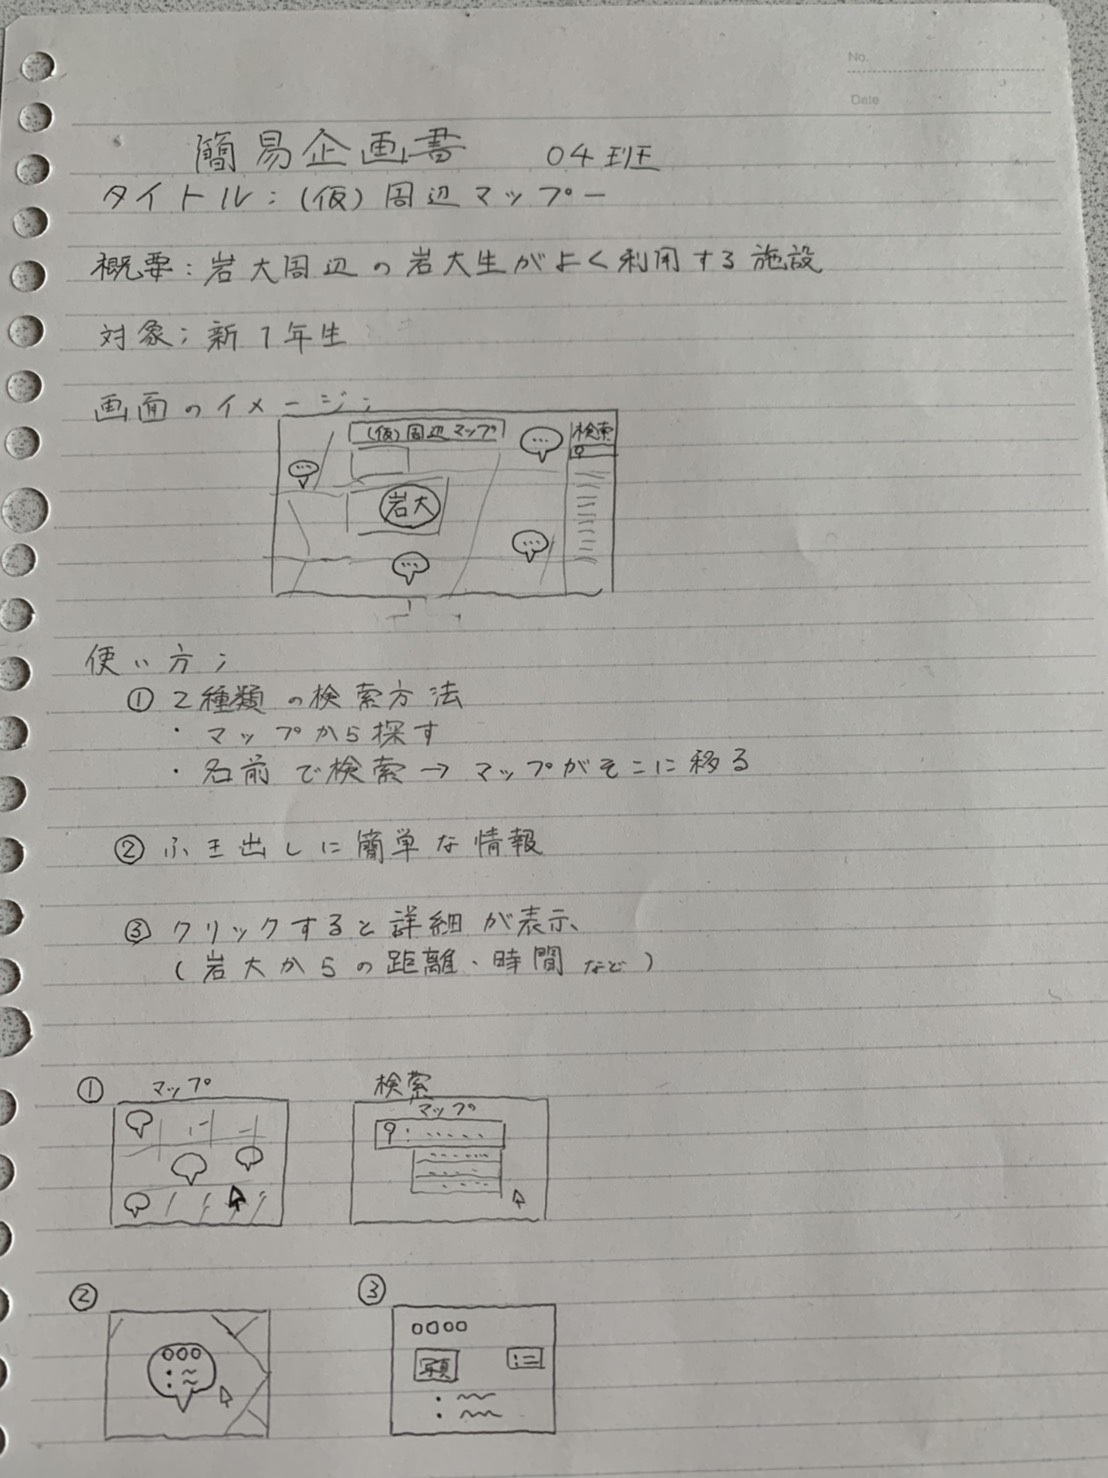 No.
Date
簡易企画書 04班
タイトル:(仮)周辺マップー
概要:岩大周辺の岩大生がよく利用する施設
対象;新1年生
画面のイメージ;
(仮)周辺マップ
検索
岩大
使い方;
① 2種類の検索方法
・マップから探す
・名前で検索→マップがそこに移る
② ふき出しに簡単な情報
③ クリックすると詳細が表示、
(岩大からの距離、時間 など)
① マップ 検索
マップ
② ③
写真